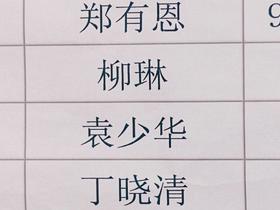 郑有恩
柳琳
袁少华
丁晓清